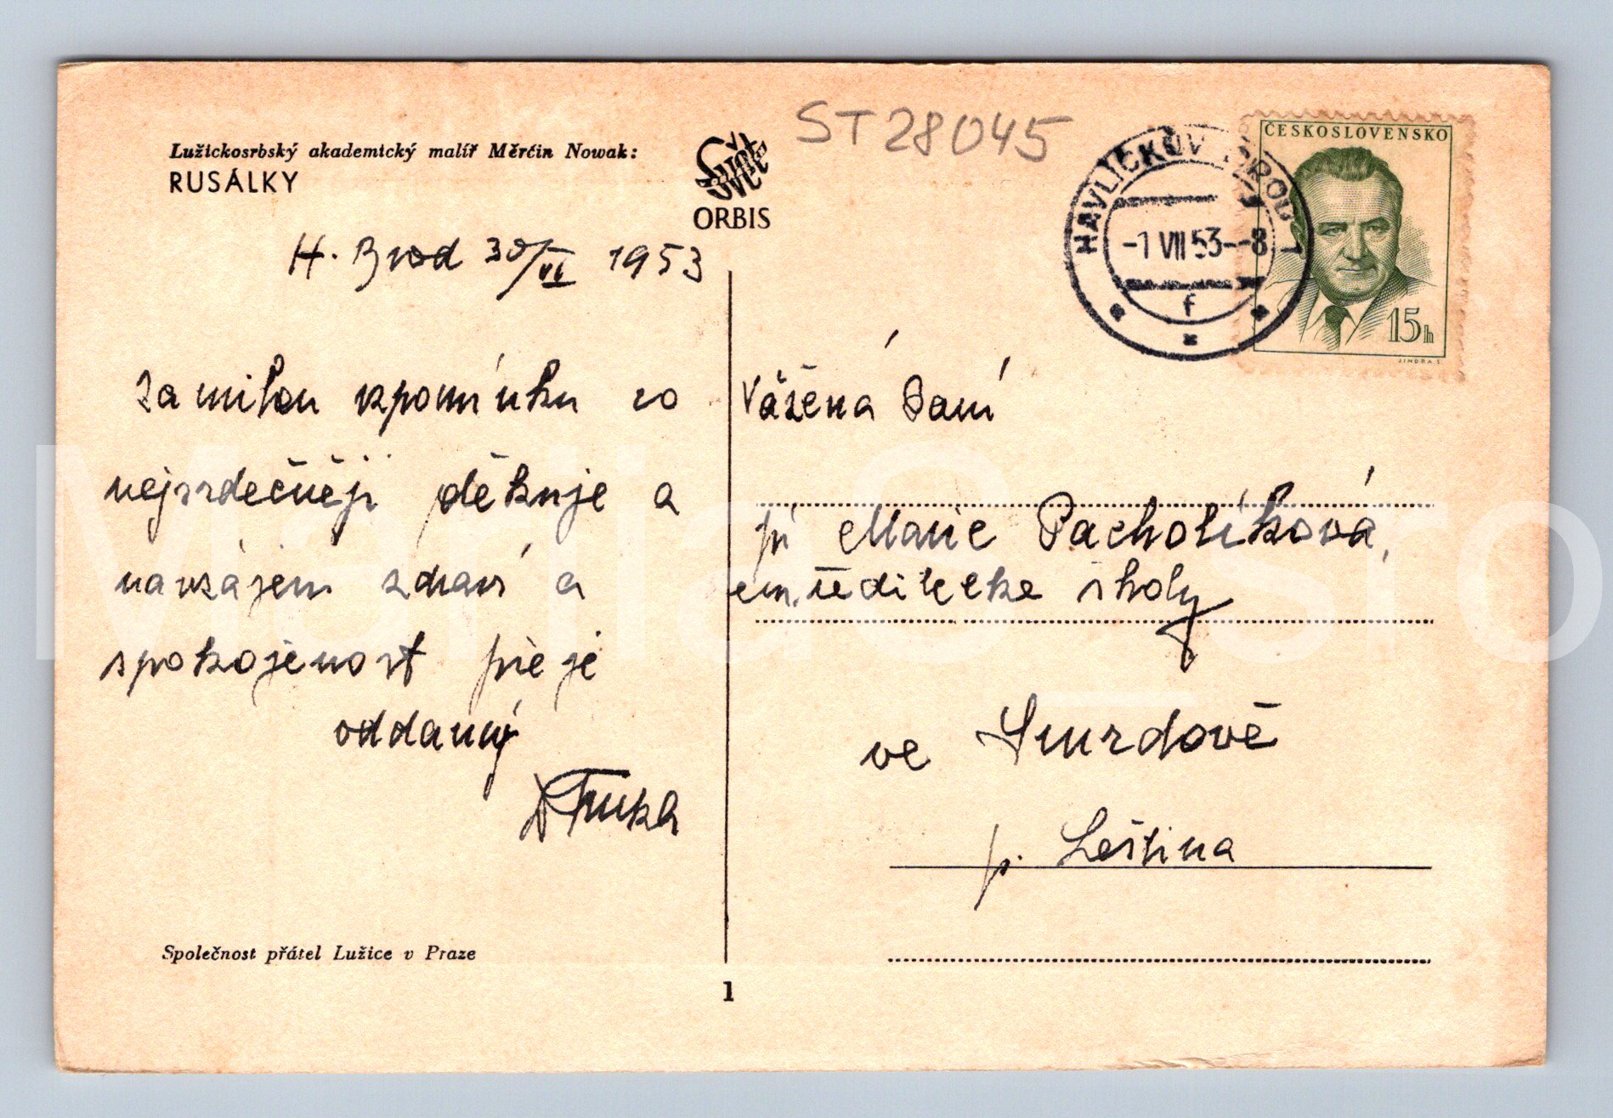 Lužickosrbský akademický malíř Měrćin Nowak:
RUSÁLKY
Svět
Svět
ORBIS
ST28045
HAVLÍČKŮV BROD 1
-1 VII 53--8
f
ČESKOSLOVENSKO
15h
JINDRA S.
H. Brod 30/VI 1953
Za milou vzpomínku co
nejsrdečněji děkuje a
navzájem zdraví a
spokojenost přeje
oddaný
Vážená Paní
pí Marie Pacholíková,
em. ředitelka školy
ve Smrdově
p. Leština
Společnost přátel Lužice v Praze
1